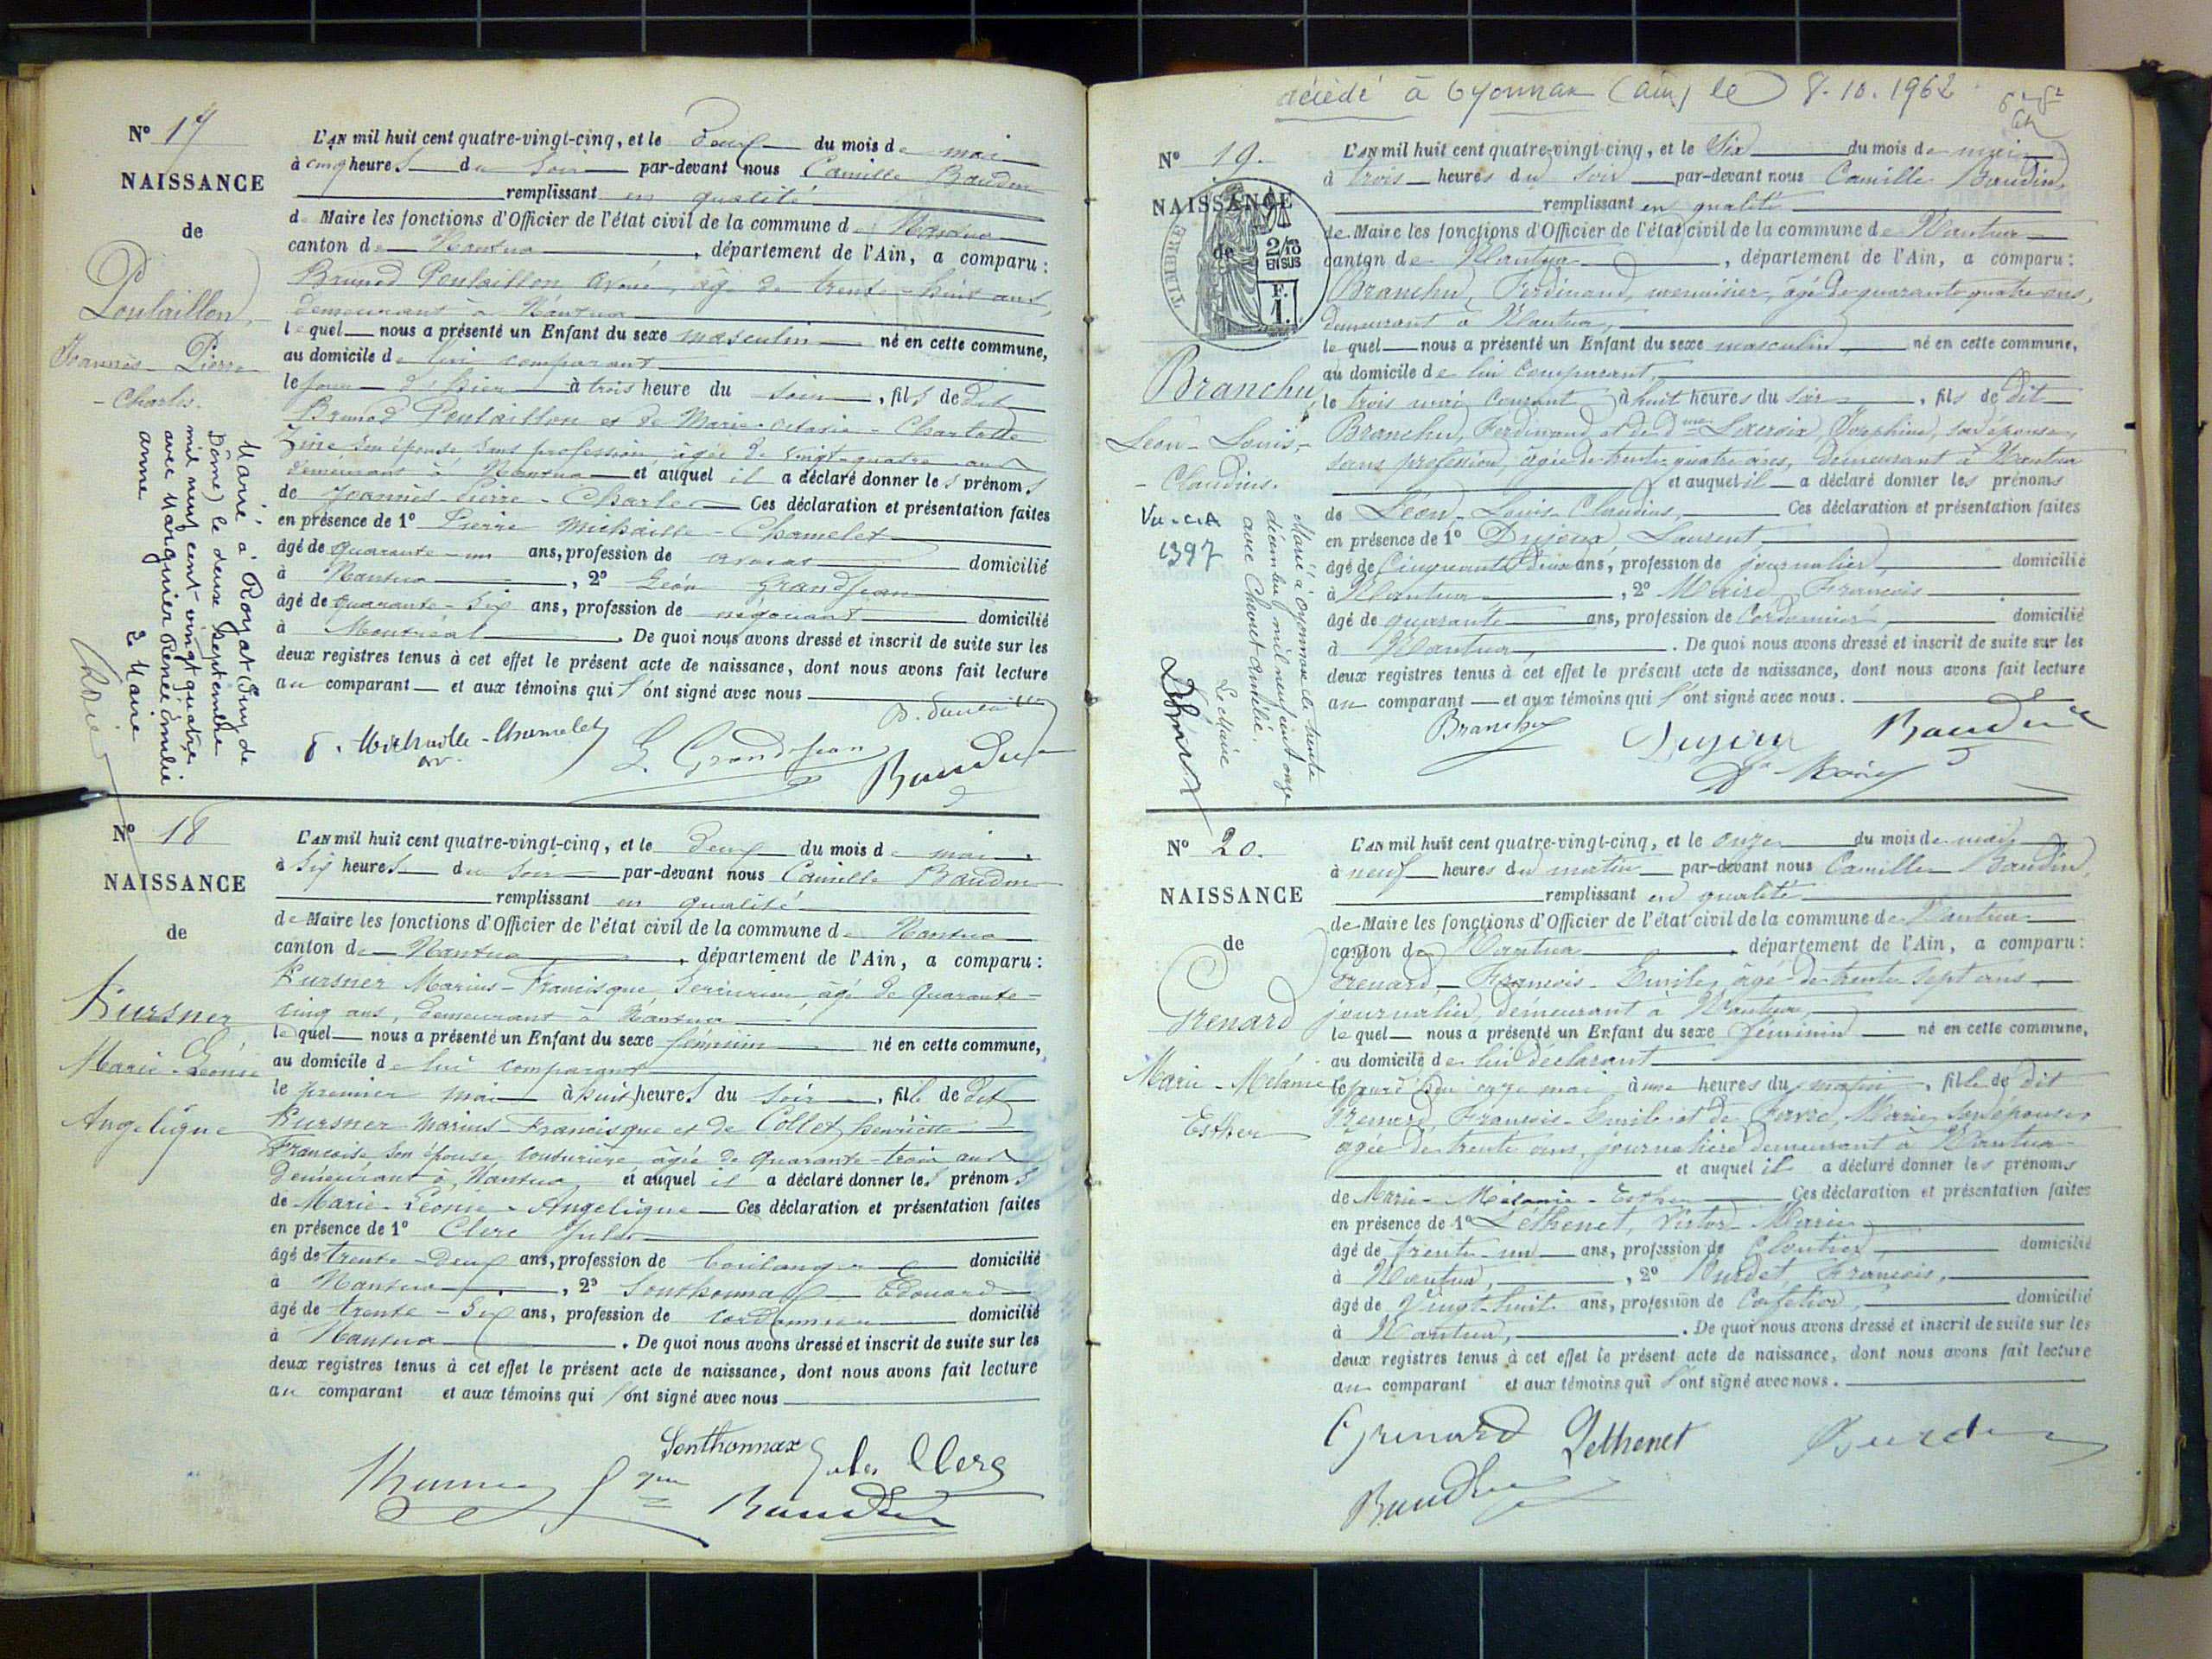 N° 17
NAISSANCE
de
Poulaillon,
Joannès-Pierre
-Charles.
Marié à Royat (Puy de
Dôme) le deux septembre
mil neuf cent vingt quatre
avec Marguerier Renée Emélie
anne
Le Maire
L'AN mil huit cent quatre-vingt-cinq, et le deux du mois de mai
à cinq heures du soir par-devant nous Camille Baudin
remplissant en qualité
de Maire les fonctions d'Officier de l'état civil de la commune de Nantua
canton de Nantua, département de l'Ain, a comparu :
Brunod Poulaillon avoué, âgé de trente-huit ans,
demeurant à Nantua
lequel nous a présenté un Enfant du sexe masculin né en cette commune,
au domicile de lui comparant
le jour d'hier à trois heure du soir, fils de dit
Brunod Poulaillon et de Marie-Octavie-Charlotte
son épouse sans profession, âgée de vingt-quatre ans
demeurant à Nantua et auquel il a déclaré donner les prénoms
de Joannès-Pierre-Charles Ces déclaration et présentation faites
en présence de 1° Pierre Michaille-Chamelet
âgé de quarante-un ans, profession de avocat domicilié
à Nantua, 2° Léon Grandjean
âgé de quarante-six ans, profession de négociant domicilié
à Montréal. De quoi nous avons dressé et inscrit de suite sur les
deux registres tenus à cet effet le présent acte de naissance, dont nous avons fait lecture
au comparant et aux témoins qui l'ont signé avec nous
P. Michaille-Chamelet
L. Grandjean
Baudin
N° 18
NAISSANCE
de
Kursner
Marie-Léonie
Angelique
L'AN mil huit cent quatre-vingt-cinq, et le deux du mois de mai
à six heures du soir par-devant nous Camille Baudin
remplissant en qualité
de Maire les fonctions d'Officier de l'état civil de la commune de Nantua
canton de Nantua, département de l'Ain, a comparu :
Kursner Marius-Francisque Serrurier âgé de quarante-
cinq ans, demeurant à Nantua
lequel nous a présenté un Enfant du sexe féminin né en cette commune,
au domicile de lui comparant
le premier mai à huit heures du soir, fille de dit
Kursner Marius Francisque et de Collet henriette
Françoise son épouse couturière âgée de quarante-trois ans
demeurant à Nantua et auquel il a déclaré donner les prénoms
de Marie-Léonie-Angelique Ces déclaration et présentation faites
en présence de 1° Clerc Jules
âgé de trente-deux ans, profession de boulanger domicilié
à Nantua, 2° Sonthonnax Edouard
âgé de trente-six ans, profession de cordonnier domicilié
à Nantua. De quoi nous avons dressé et inscrit de suite sur les
deux registres tenus à cet effet le présent acte de naissance, dont nous avons fait lecture
au comparant et aux témoins qui l'ont signé avec nous
Sonthonnax Jules Clerc
Baudin
décédé à Oyonnax (Ain) le 8.10.1962
N° 19.
NAISSANCE
de
TIMBRE
2/10 EN SUS
F. 1.
Branchu,
Léon-Louis-
-Claudius.
Marié à Oyonnax le trente
décembre mil neuf cent onze
avec Chevret Amélie.
Le Maire
L'AN mil huit cent quatre-vingt-cinq, et le Six du mois de mai
à trois heures du soir par-devant nous Camille Baudin,
remplissant en qualité
de Maire les fonctions d'Officier de l'état civil de la commune de Nantua
canton de Nantua, département de l'Ain, a comparu :
Branchu, Ferdinand, menuisier, âgé de quarante quatre ans,
demeurant à Nantua,
lequel nous a présenté un Enfant du sexe masculin, né en cette commune,
au domicile de lui comparant,
le trois mai courant à huit heures du soir, fils de dit
Branchu, Ferdinand et de dme Lacroix, Josephine, son épouse,
sans profession, âgée de trente-quatre ans, demeurant à Nantua
et auquel il a déclaré donner les prénoms
de Léon-Louis-Claudius, Ces déclaration et présentation faites
en présence de 1° Dujoux Laurent
âgé de Cinquante deux ans, profession de journalier, domicilié
à Nantua, 2° Maire François
âgé de quarante ans, profession de Cordonnier, domicilié
à Nantua, De quoi nous avons dressé et inscrit de suite sur les
deux registres tenus à cet effet le présent acte de naissance, dont nous avons fait lecture
au comparant et aux témoins qui l'ont signé avec nous.
Branchu Dujoux Baudin
N° 20.
NAISSANCE
de
Grenard
Marie-Mélanie
Esther
L'AN mil huit cent quatre-vingt-cinq, et le onze du mois de mai,
à neuf heures du matin par-devant nous Camille Baudin,
remplissant en qualité
de Maire les fonctions d'Officier de l'état civil de la commune de Nantua
canton de Nantua, département de l'Ain, a comparu :
Grenard, François-Emile, âgé de trente sept ans,
journalier, demeurant à Nantua,
lequel nous a présenté un Enfant du sexe féminin né en cette commune,
au domicile de lui déclarant
le jourd'hui onze mai à une heures du matin, fille de dit
Grenard, François-Emile et de Favre, Marie, son épouse,
âgée de trente ans, journalière demeurant à Nantua
et auquel il a déclaré donner les prénoms
de Marie-Mélanie-Esther Ces déclaration et présentation faites
en présence de 1° Léthenet, Victor-Marie,
âgé de trente-un ans, profession de Cloutier, domicilié
à Nantua, 2° Burdet, François,
âgé de Vingt-huit ans, profession de Cafetier, domicilié
à Nantua, De quoi nous avons dressé et inscrit de suite sur les
deux registres tenus à cet effet le présent acte de naissance, dont nous avons fait lecture
au comparant et aux témoins qui l'ont signé avec nous.
Grenard Lethenet Burdet
Baudin